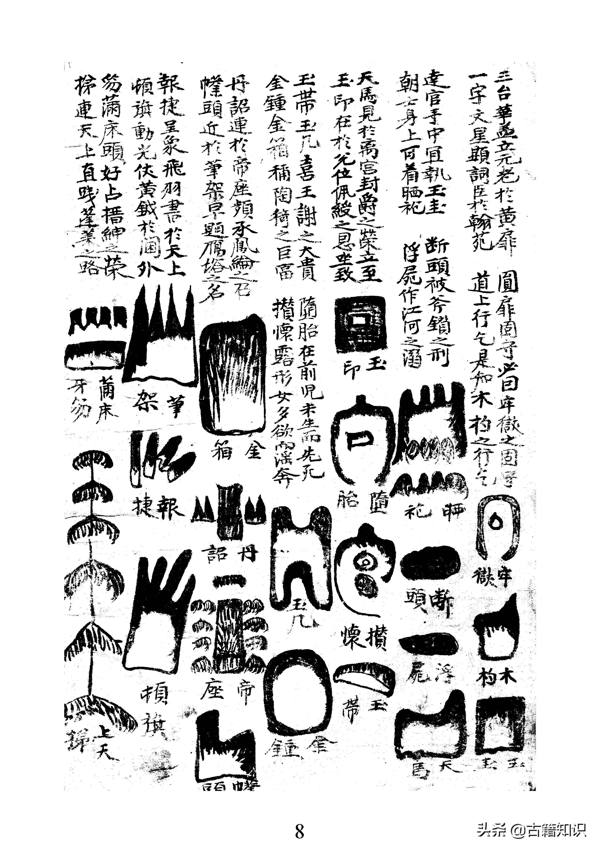 三台華蓋立元老於黄扉
一字文星顯詞臣於翰苑
達官手中宜執玉圭
朝士身上可着晒袍
天馬見於離宮封爵之榮立至
玉印在於兌位佩綬之恩坐致
玉帶玉几喜王謝之大貴
金鍾金箱稱陶猗之巨富
丹詔連於帝座頻承鳳綸之召
幞頭近於筆架早題鴈塔之名
報捷呈象飛羽書於天上
頓旗動光伏黄鉞於閫外
笏滿床頭好占搢紳之榮
梯連天上直踐蓬萊之路
圓扉圓守必曰牢獄之固守
道上行乞是如木杓之行乞
断頭被斧鑕之刑
浮屍作江河之溺
墮胎在前児未生而先死
攢懷露形女多欲而淫奔
玉印
金箱
筆架
滿床牙笏
墮胎
晒袍
報捷
丹詔
玉几
牢獄
断頭
攢懷
浮屍
木杓
帝座
玉帶
頓旗
金鍾
天馬
玉圭
上天梯
幞頭
8
头条 @古籍知识